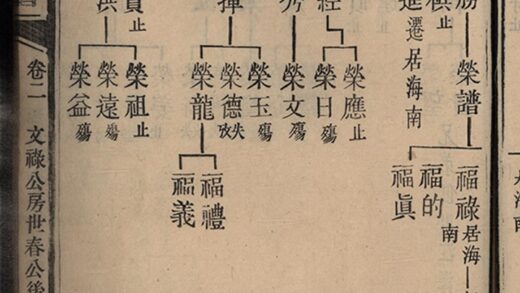 海南
榮譜
福祿居海南
福的
福眞
止
遷居海南
經
榮應止
榮日殤
榮文殤
揮
榮玉殤
榮德失攷
榮龍
福禮
福義
止
榮祖止
榮遠殤
洪
榮益殤
卷二 文祿公房世春公後